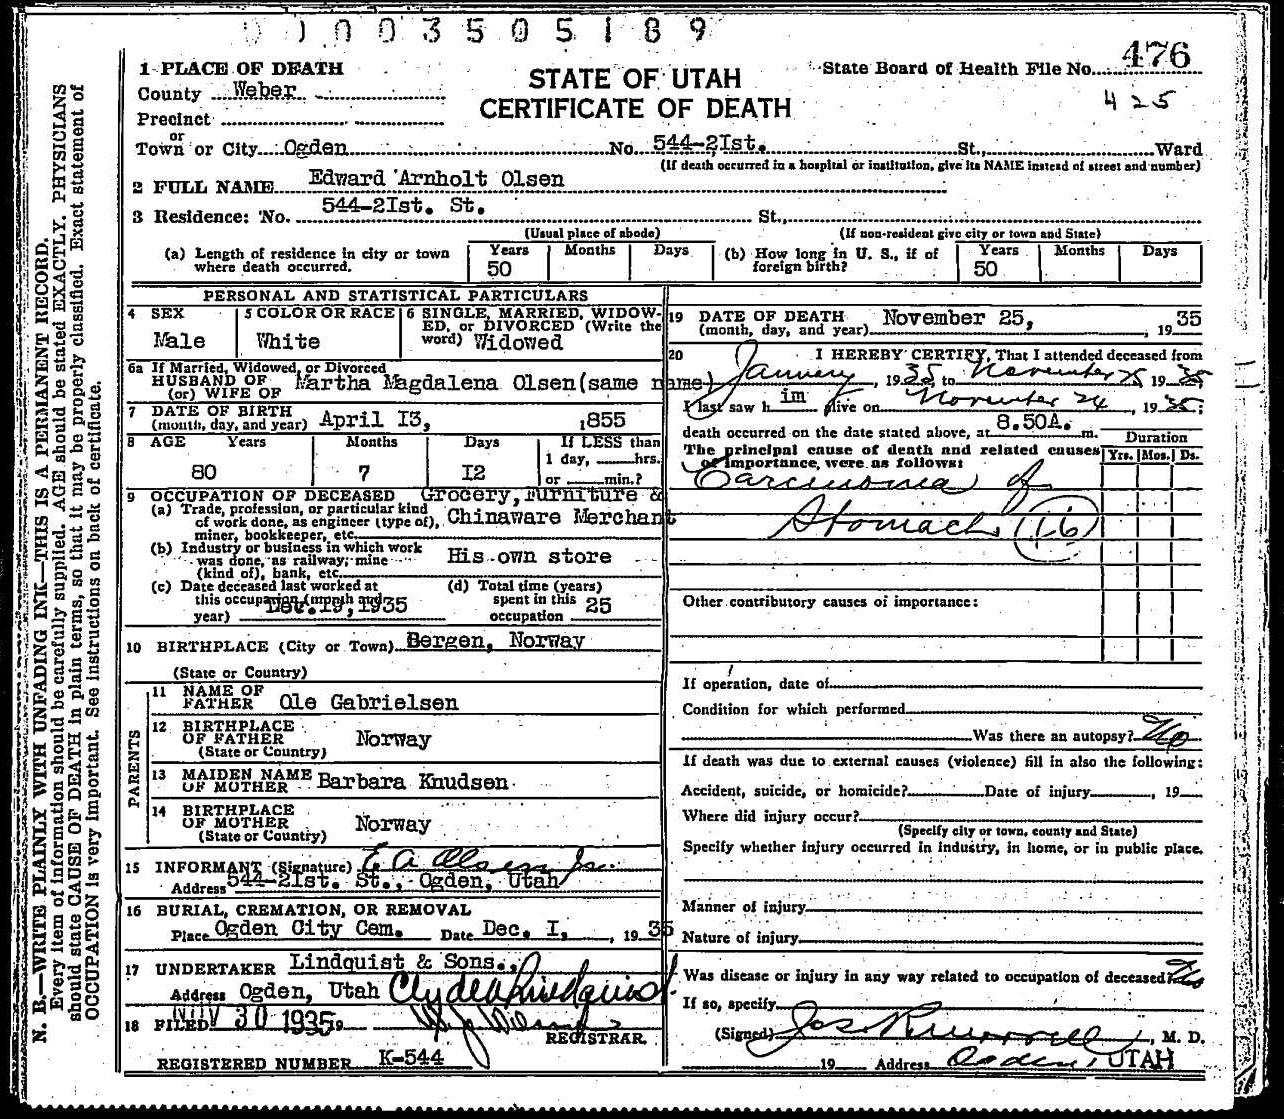 01003505189
476
1 PLACE OF DEATH
STATE OF UTAH
State Board of Health File No. 476
County Weber
CERTIFICATE OF DEATH
425
Precinct
or
Town or City Ogden No. 544-2Ist. St., Ward
(If death occurred in a hospital or institution, give its NAME instead of street and number)
2 FULL NAME Edward Arnholt Olsen
3 Residence: No. 544-2Ist. St. St.,
(Usual place of abode) (If non-resident give city or town and State)
(a) Length of residence in city or town where death occurred. Years 50 Months Days
(b) How long in U. S., if of foreign birth? Years 50 Months Days
PERSONAL AND STATISTICAL PARTICULARS
4 SEX Male
5 COLOR OR RACE White
6 SINGLE, MARRIED, WIDOWED, or DIVORCED (Write the word) Widowed
6a If Married, Widowed, or Divorced
HUSBAND OF Martha Magdalena Olsen(same name)
(or) WIFE OF
7 DATE OF BIRTH
(month, day, and year) April I3, 1855
8 AGE Years 80 Months 7 Days I2 If LESS than 1 day, hrs. or min.?
9 OCCUPATION OF DECEASED Grocery, Furniture &
(a) Trade, profession, or particular kind of work done, as engineer (type of), miner, bookkeeper, etc. Chinaware Merchant
(b) Industry or business in which work was done, as railway; mine (kind of), bank, etc. His own store
(c) Date deceased last worked at this occupation (month and year) 1935
(d) Total time (years) spent in this occupation 25
10 BIRTHPLACE (City or Town) Bergen, Norway
(State or Country)
PARENTS
11 NAME OF FATHER Ole Gabrielsen
12 BIRTHPLACE OF FATHER Norway
(State or Country)
13 MAIDEN NAME OF MOTHER Barbara Knudsen
14 BIRTHPLACE OF MOTHER Norway
(State or Country)
15 INFORMANT (Signature) E A Olsen Jr.
Address 544-2Ist. St., Ogden, Utah
16 BURIAL, CREMATION, OR REMOVAL
Place Ogden City Cem. Date Dec. I, 1935
17 UNDERTAKER Lindquist & Sons.,
Address Ogden, Utah
18 FILED NOV 30 1935 19
REGISTRAR.
REGISTERED NUMBER K-544
19 DATE OF DEATH
(month, day, and year) November 25, 1935
20 I HEREBY CERTIFY, That I attended deceased from
January, 1935, to November 25 1935
I last saw him alive on November 24, 1935;
death occurred on the date stated above, at 8.50A. m.
Duration
The principal cause of death and related causes of importance, were as follows: Yrs. Mos. Ds.
Carcinoma of
Stomach
Other contributory causes of importance:
If operation, date of
Condition for which performed
Was there an autopsy? No
If death was due to external causes (violence) fill in also the following:
Accident, suicide, or homicide? Date of injury , 19
Where did injury occur?
(Specify city or town, county and State)
Specify whether injury occurred in industry, in home, or in public place.
Manner of injury
Nature of injury
Was disease or injury in any way related to occupation of deceased? No
If so, specify
(Signed) , M. D.
19 Address Ogden, UTAH
N. B.—WRITE PLAINLY WITH UNFADING INK—THIS IS A PERMANENT RECORD.
Every item of information should be carefully supplied. AGE should be stated EXACTLY. PHYSICIANS
should state CAUSE OF DEATH in plain terms, so that it may be properly classified. Exact statement of
OCCUPATION is very important. See instructions on back of certificate.